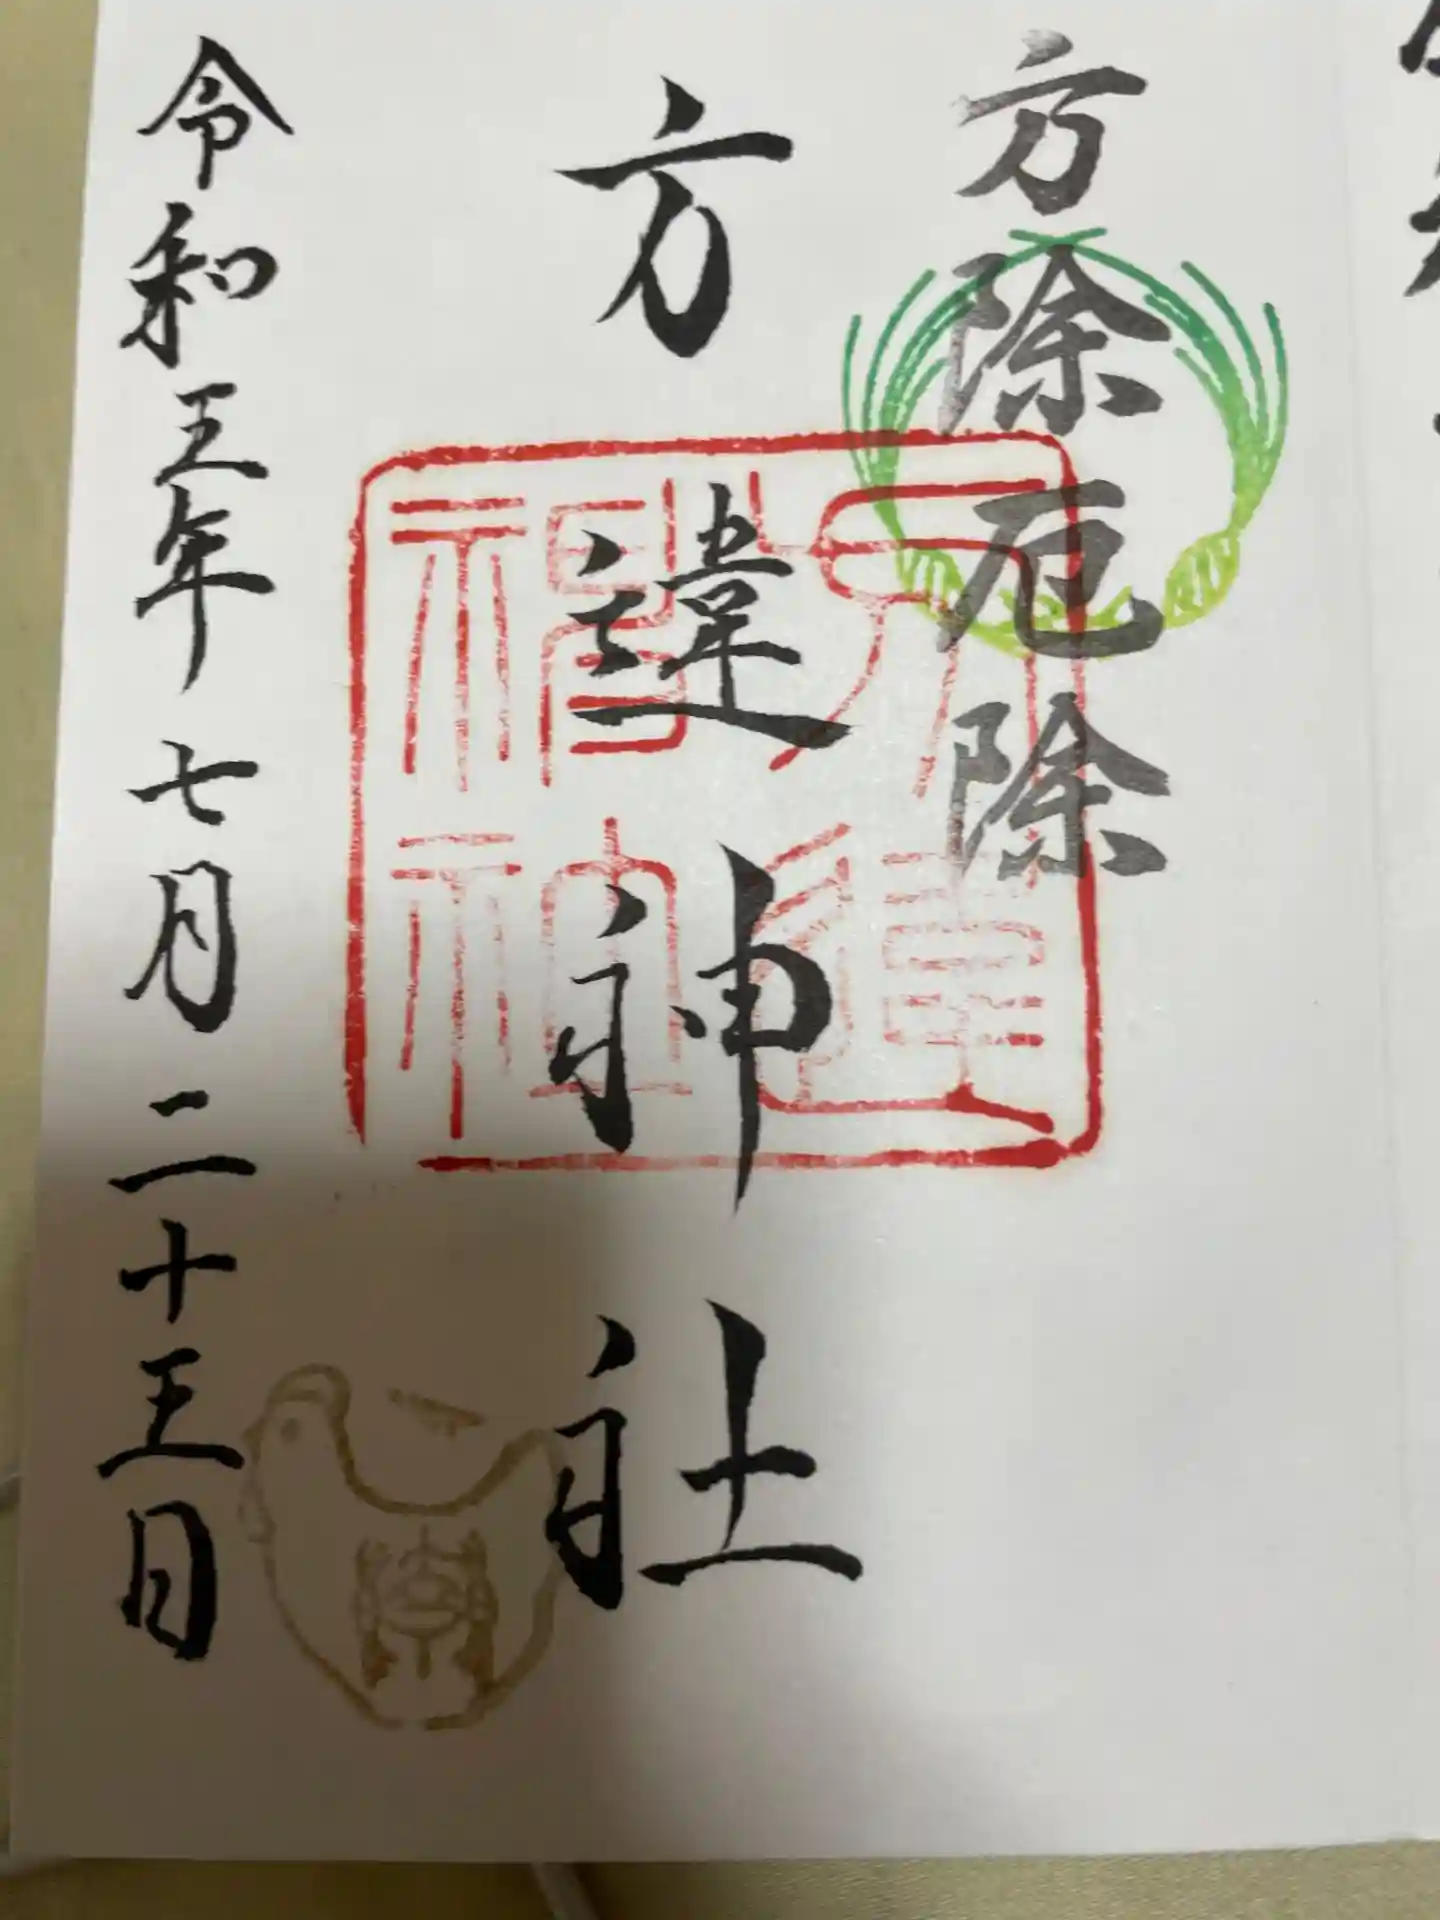 方除厄除
方違神社
令和五年七月二十五日
方違神社